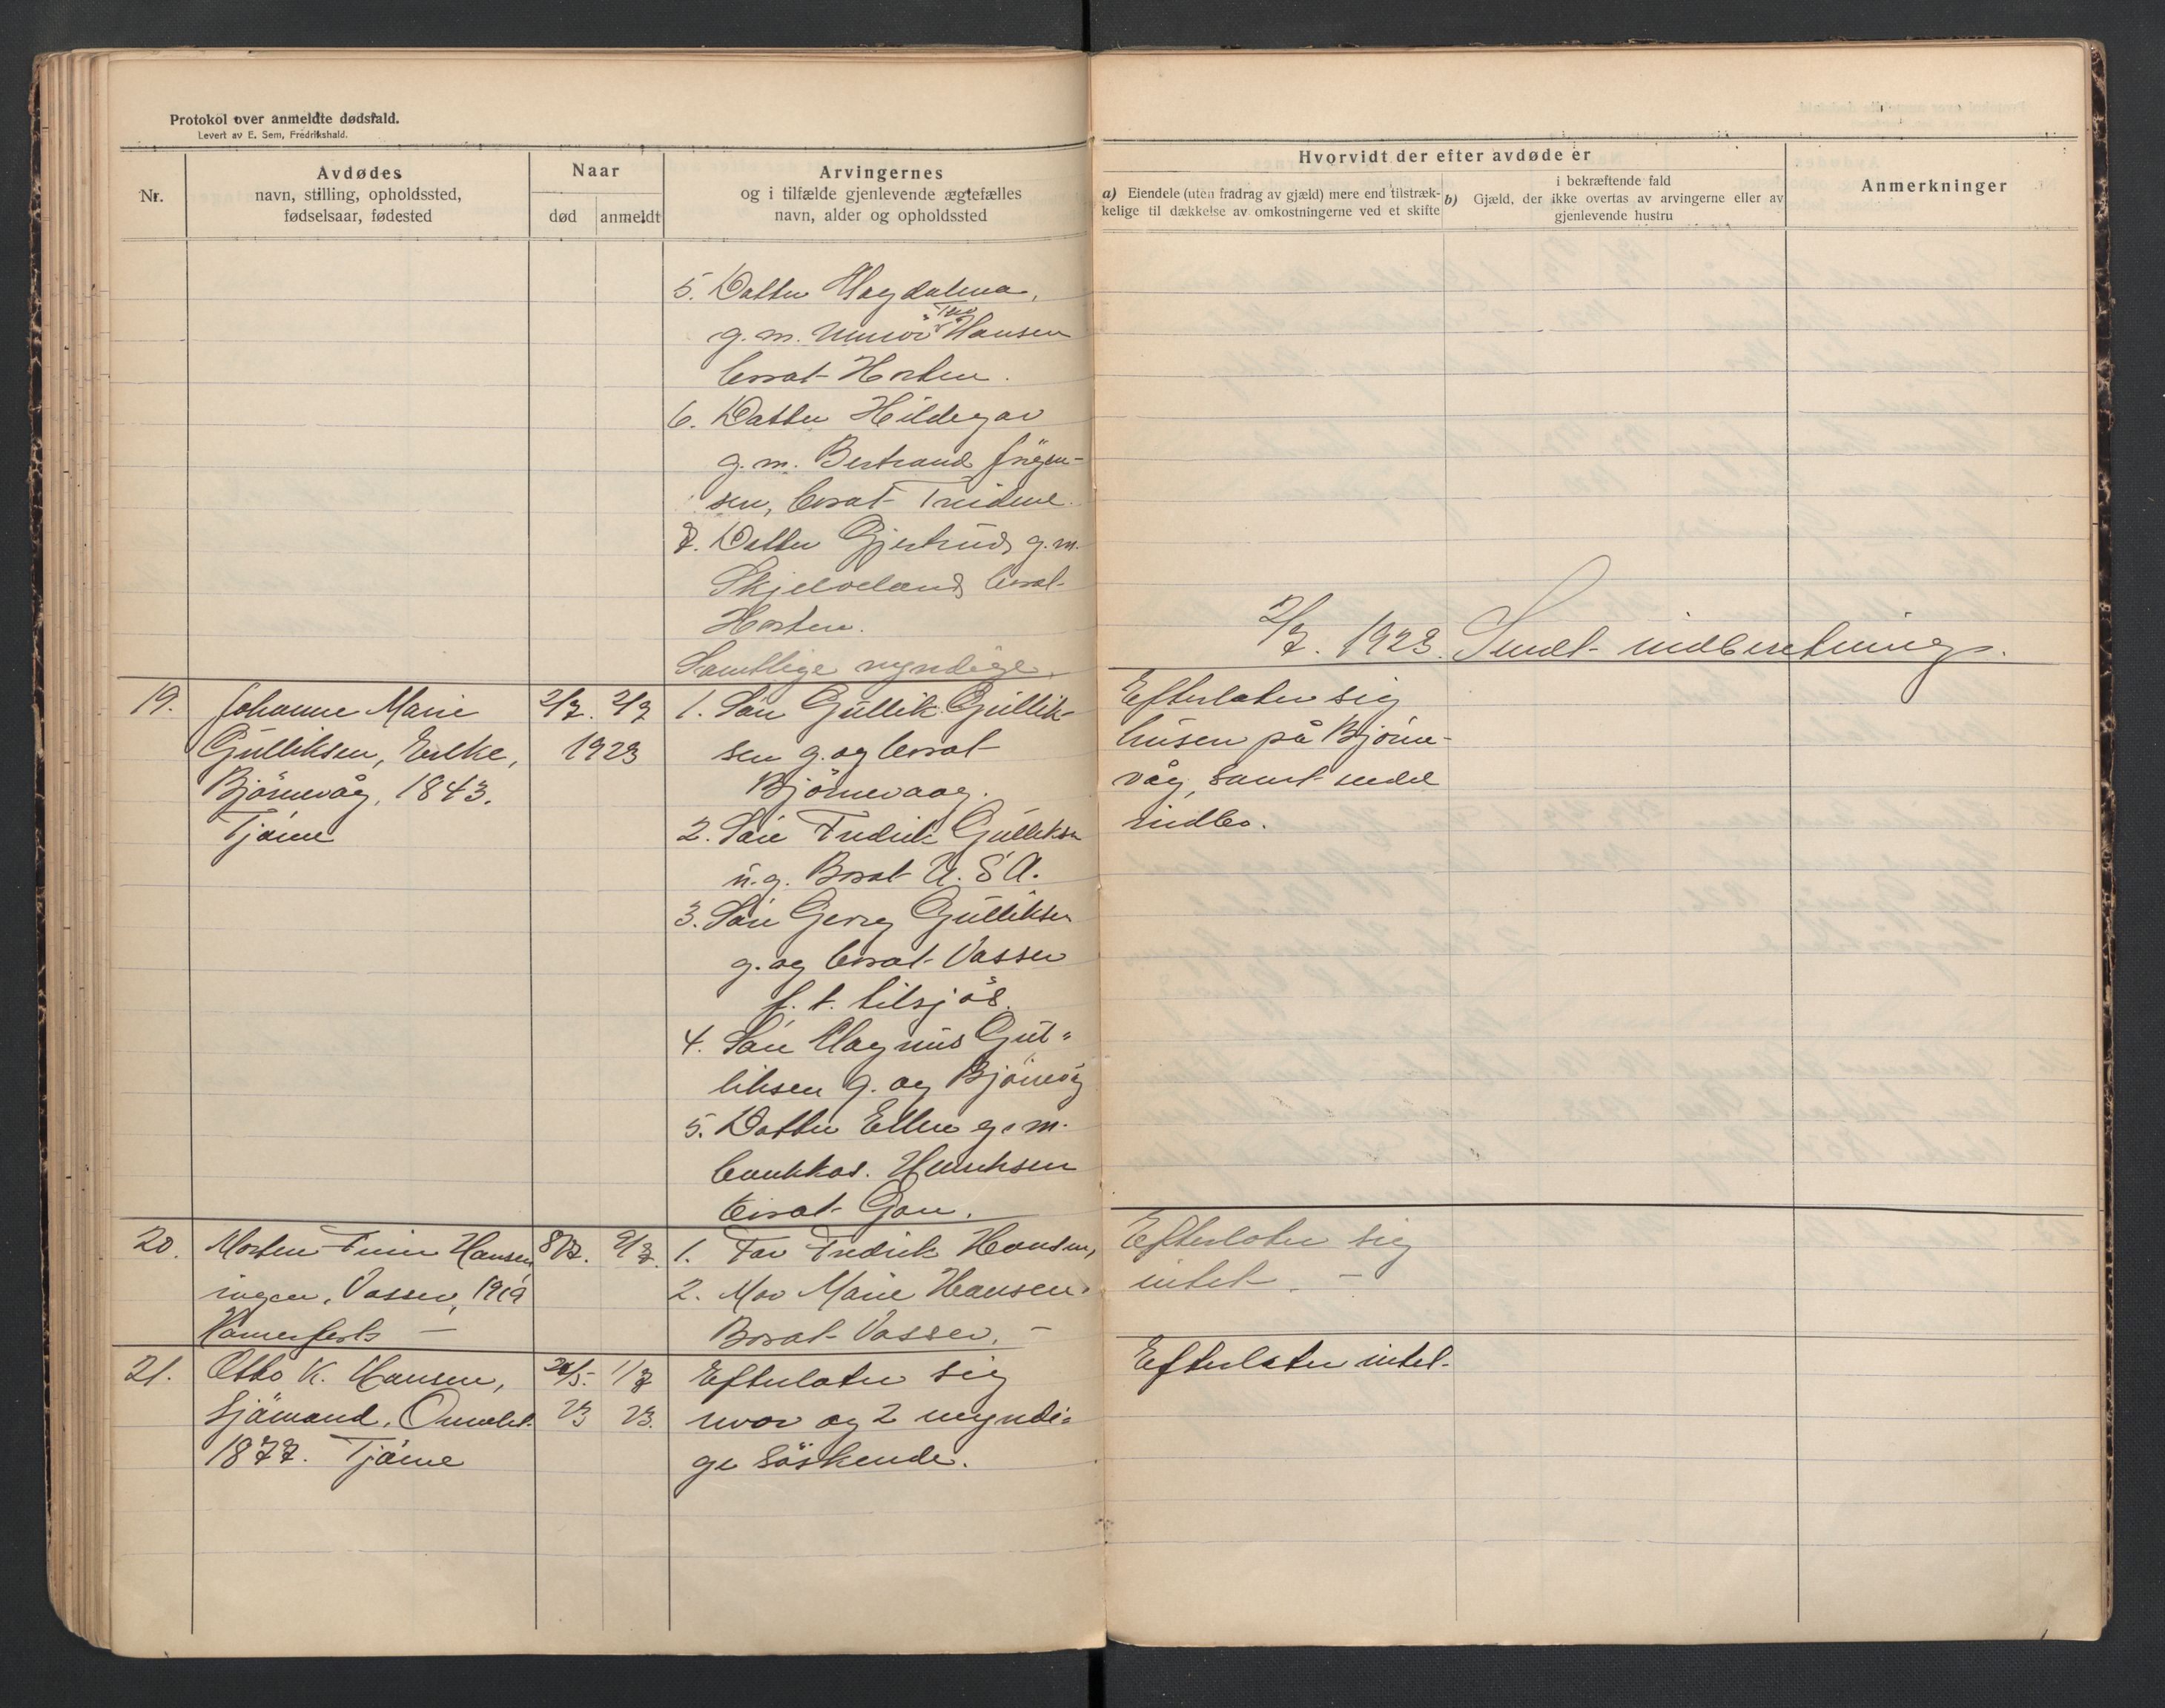 Protokol over anmeldte dødsfald.
Levert av E. Sem, Fredrikshald.
Nr.
Avdødes
navn, stilling, opholdssted,
fødselsaar, fødested
Naar
død
anmeldt
Arvingernes
og i tilfælde gjenlevende ægtefælles
navn, alder og opholdssted
Hvorvidt der efter avdøde er
a) Eiendele (uten fradrag av gjæld) mere end tilstræk-
kelige til dækkelse av omkostningerne ved et skifte
i bekræftende fald
b) Gjæld, der ikke overtas av arvingerne eller av
gjenlevende hustru
Anmerkninger
5. Datter Magdalena,
g.m. Hansen
bosat Horten.
6. Datter Hildegar
g.m. Bertrand Jörgen-
sen, bosat
7. Datter Gjertrud g.m.
Skjelveland bosat
Horten.
Samtlige myndige.
2/7. 1923. Sendt indberetning.
19.
Johanne Marie
Gulliksen, Enke,
Bjørnevåg, 1843.
Tjöme
2/7. 2/7
1923
1. Sön Gullik Gullik-
sen g. og bosat
Bjørnevaag.
2. Sön Fredrik Gulliksen
u.g. Bosat U.S.A.
3. Sön Georg Gulliksen
g. og bosat Vasser
f.t. tilsjös.
4. Sön Magnus Gul-
liksen g. og Björnevåg
5. Datter Ellen g.m.
bankkas. Henriksen
bosat Gon.
Efterlater sig
husen på Bjørne-
våg, samt endel
indbo.
20.
Morten Finn Hansen
ingen, Vasser, 1919
Hamerfest —
8/7. 9/7.
1. Far Fredrik Hansen,
2. Mor Marie Hansen.
Bosat Vasser. —
Efterlater sig
intet. —
21.
Otto K. Hansen,
Sjömand,
1877. Tjöme
/5- 1/7
23 23.
Efterlater sig
mor og 2 myndi-
ge Söskende.
Efterlater intet.